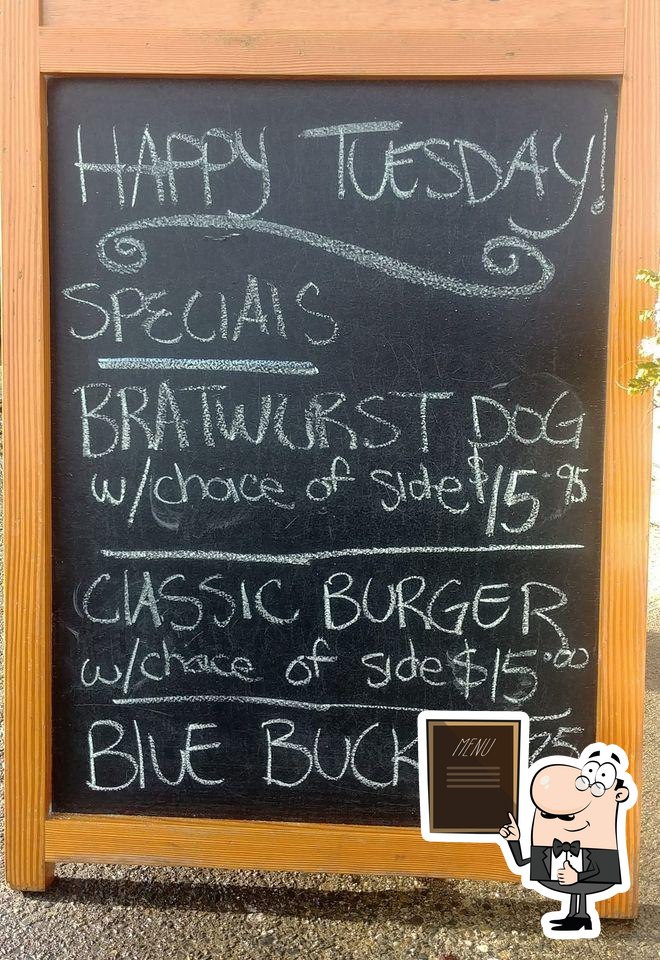 HAPPY TUESDAY!
SPECIALS
BRATWURST DOG
w/choice of side $15.95
CLASSIC BURGER
w/choice of side $15.00
BLUE BUCK
MENU